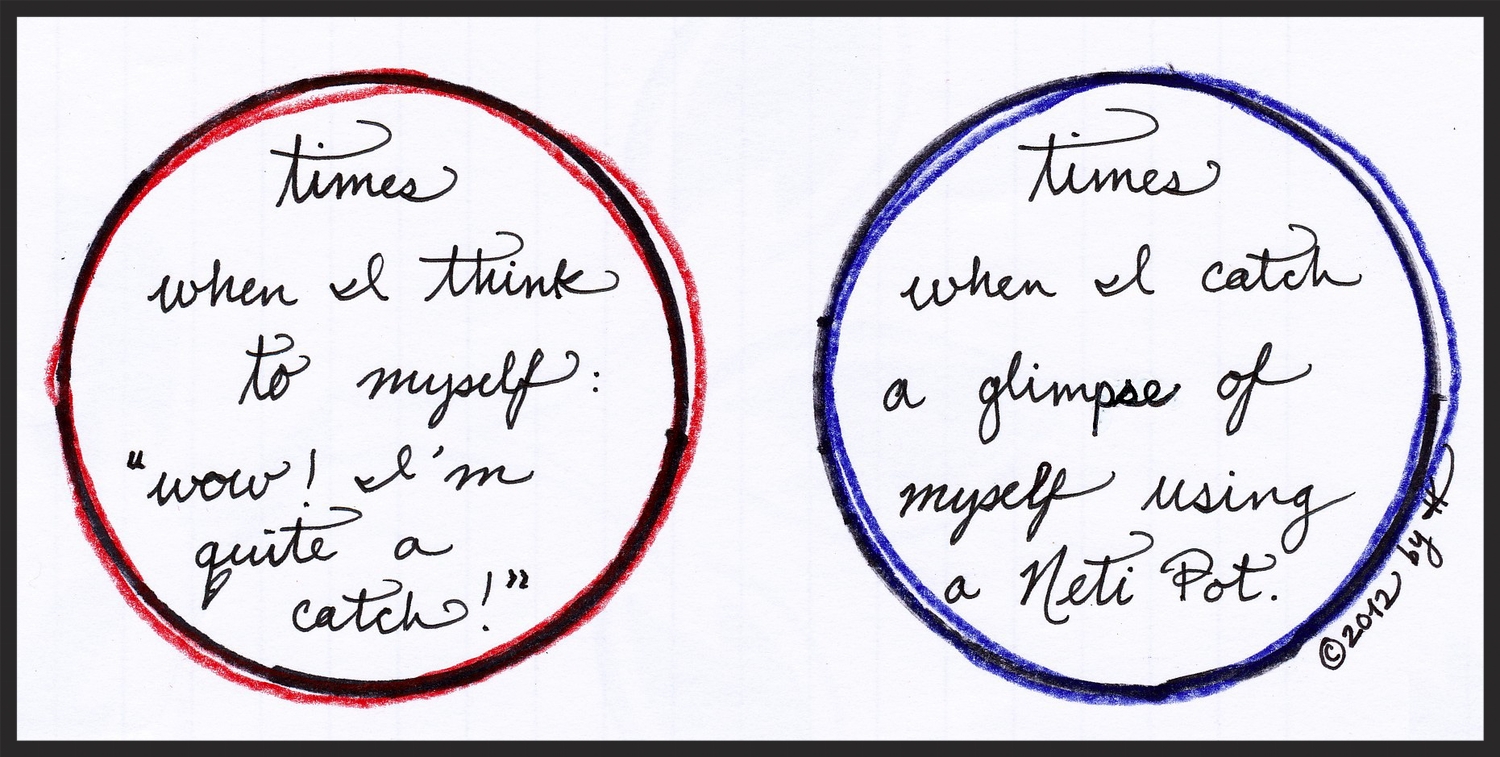 times
when I think
to myself:
"wow! I'm
quite a
catch!"
times
when I catch
a glimpse of
myself using
a Neti Pot.
©2012 by H